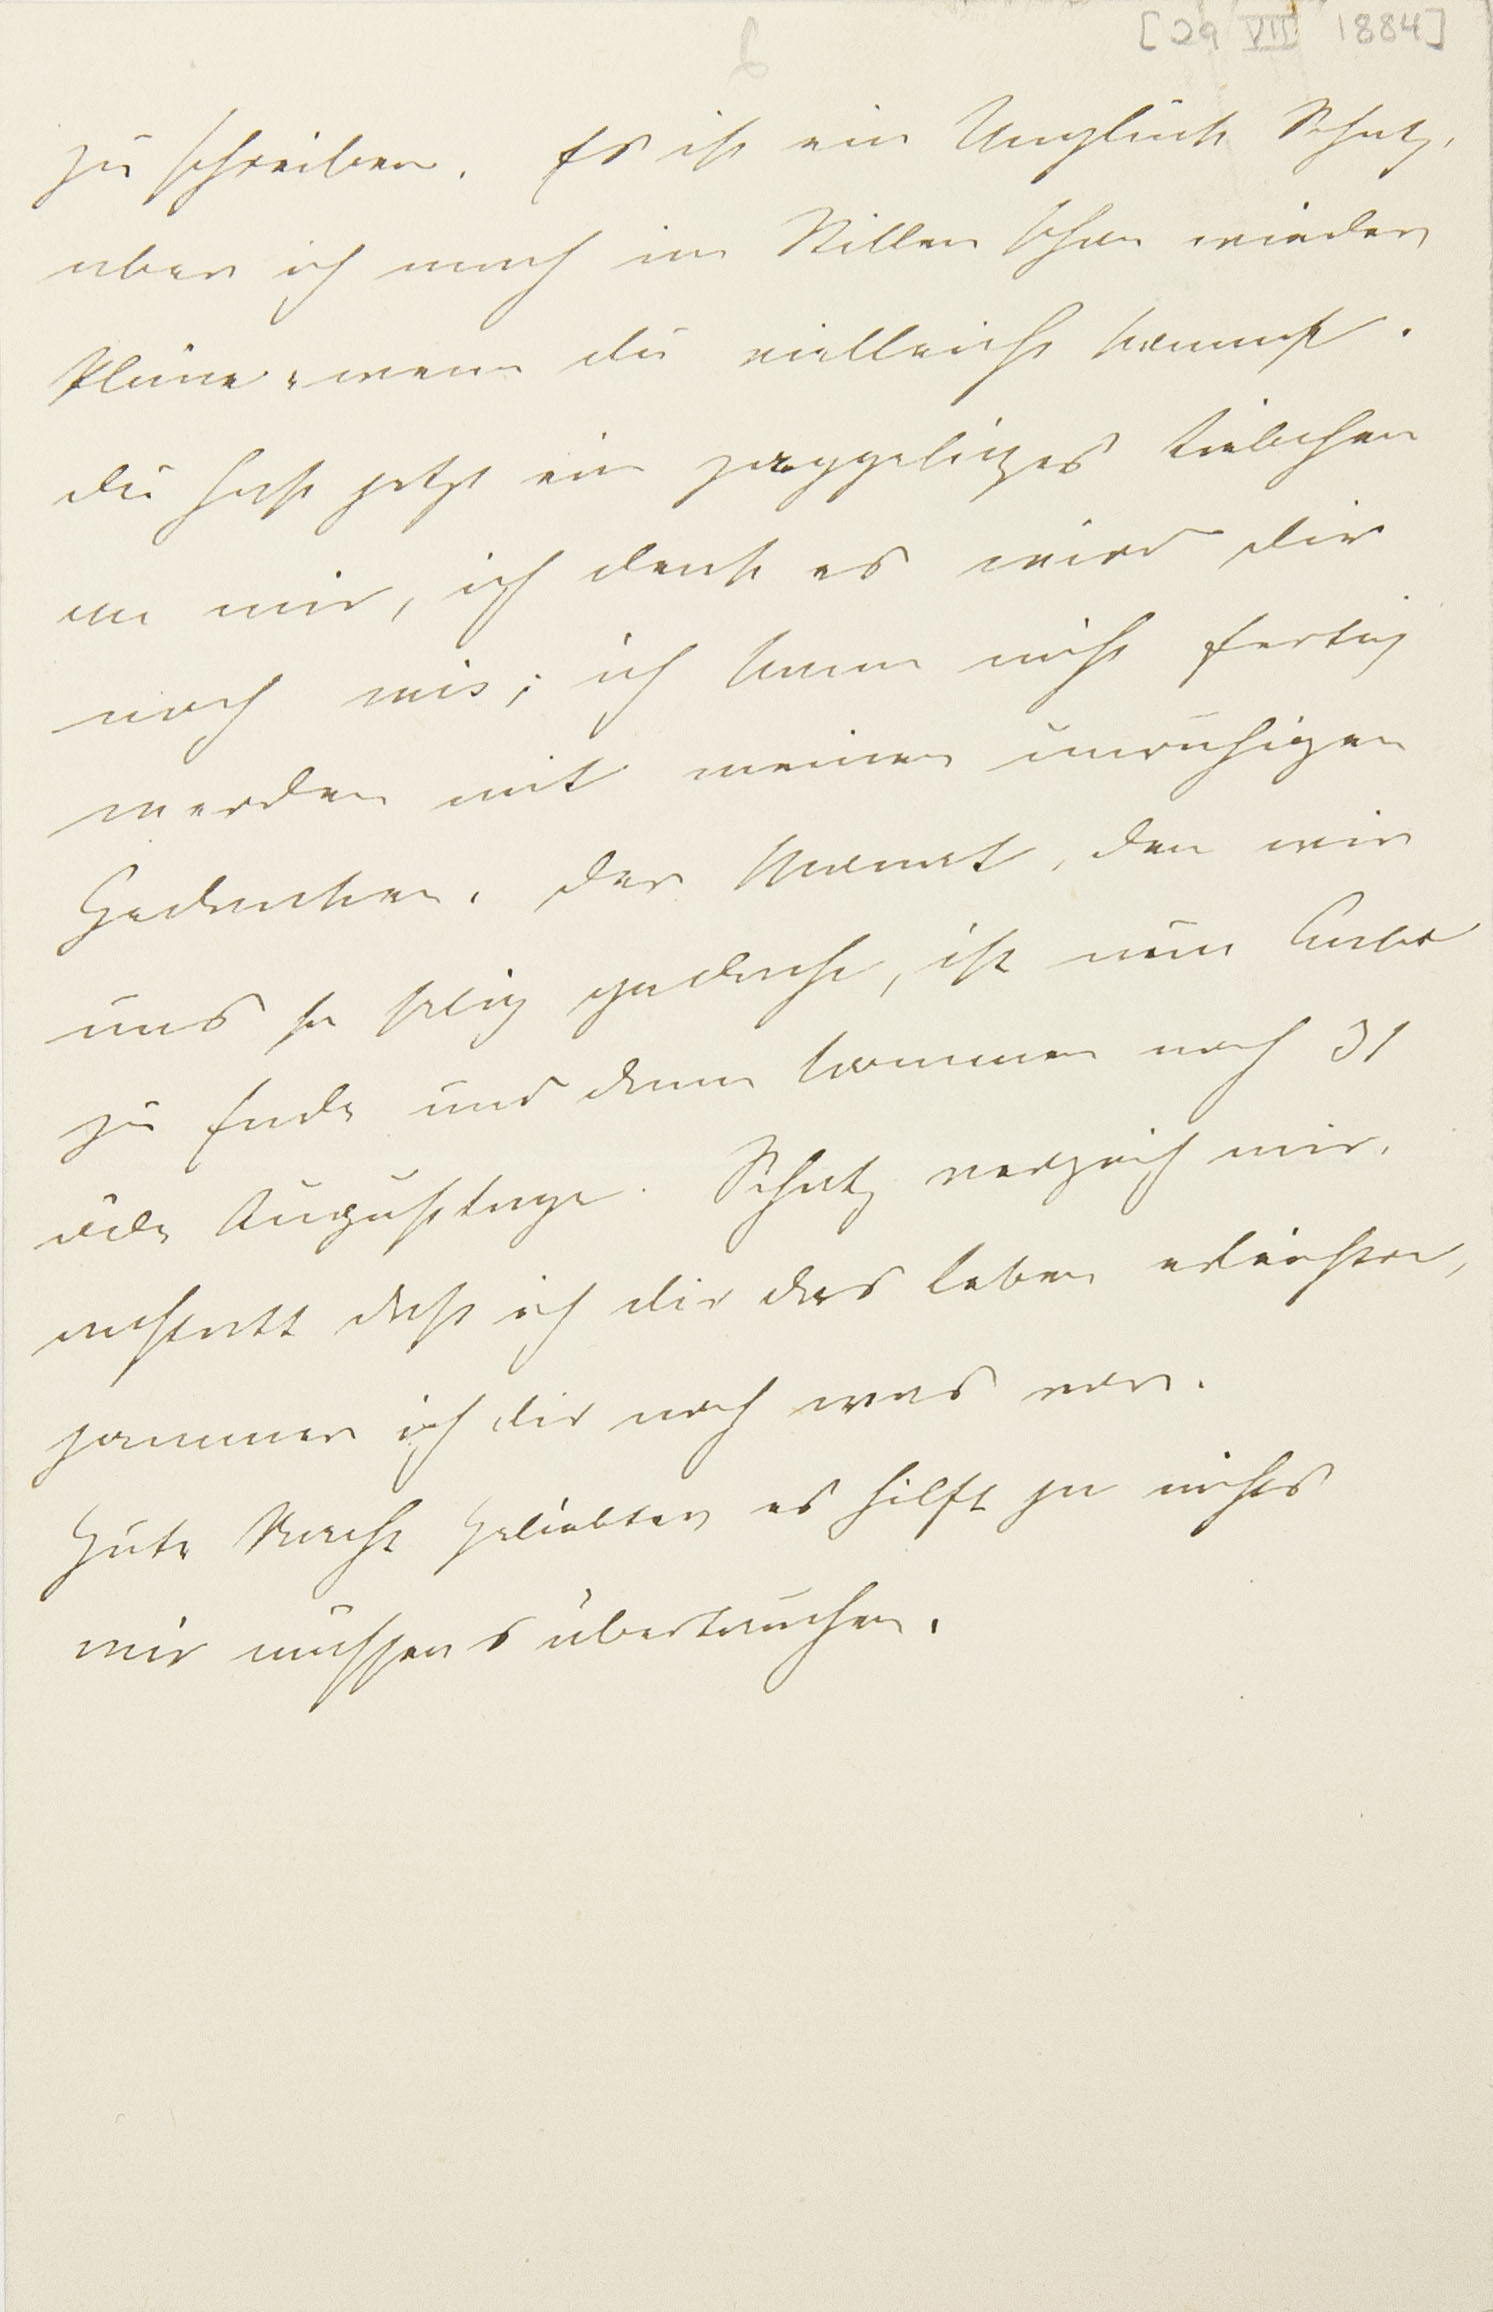 [29 VII 1884]
6
zu schreiben. Es ist ein Unglück Schatz,
aber ich mach im Stillen schon wieder
Pläne, wenn du vielleicht kommst.
du hast jetzt ein zappeliges Liebchen
an mir, ich denk es wird dir
noch mies; ich kann nicht fertig
werden mit meinen unruhigen
Gedanken. der Monat, den wir
uns so selig gedacht, ist nun balde
zu Ende und dann kommen noch 31
öde Augusttage. Schatz verzeih mir,
anstatt daß ich dir das Leben erleichtre,
jammer ich dir noch was vor.
Gute Nacht Geliebter es hilft ja nichts
wir müssens übertauchen.